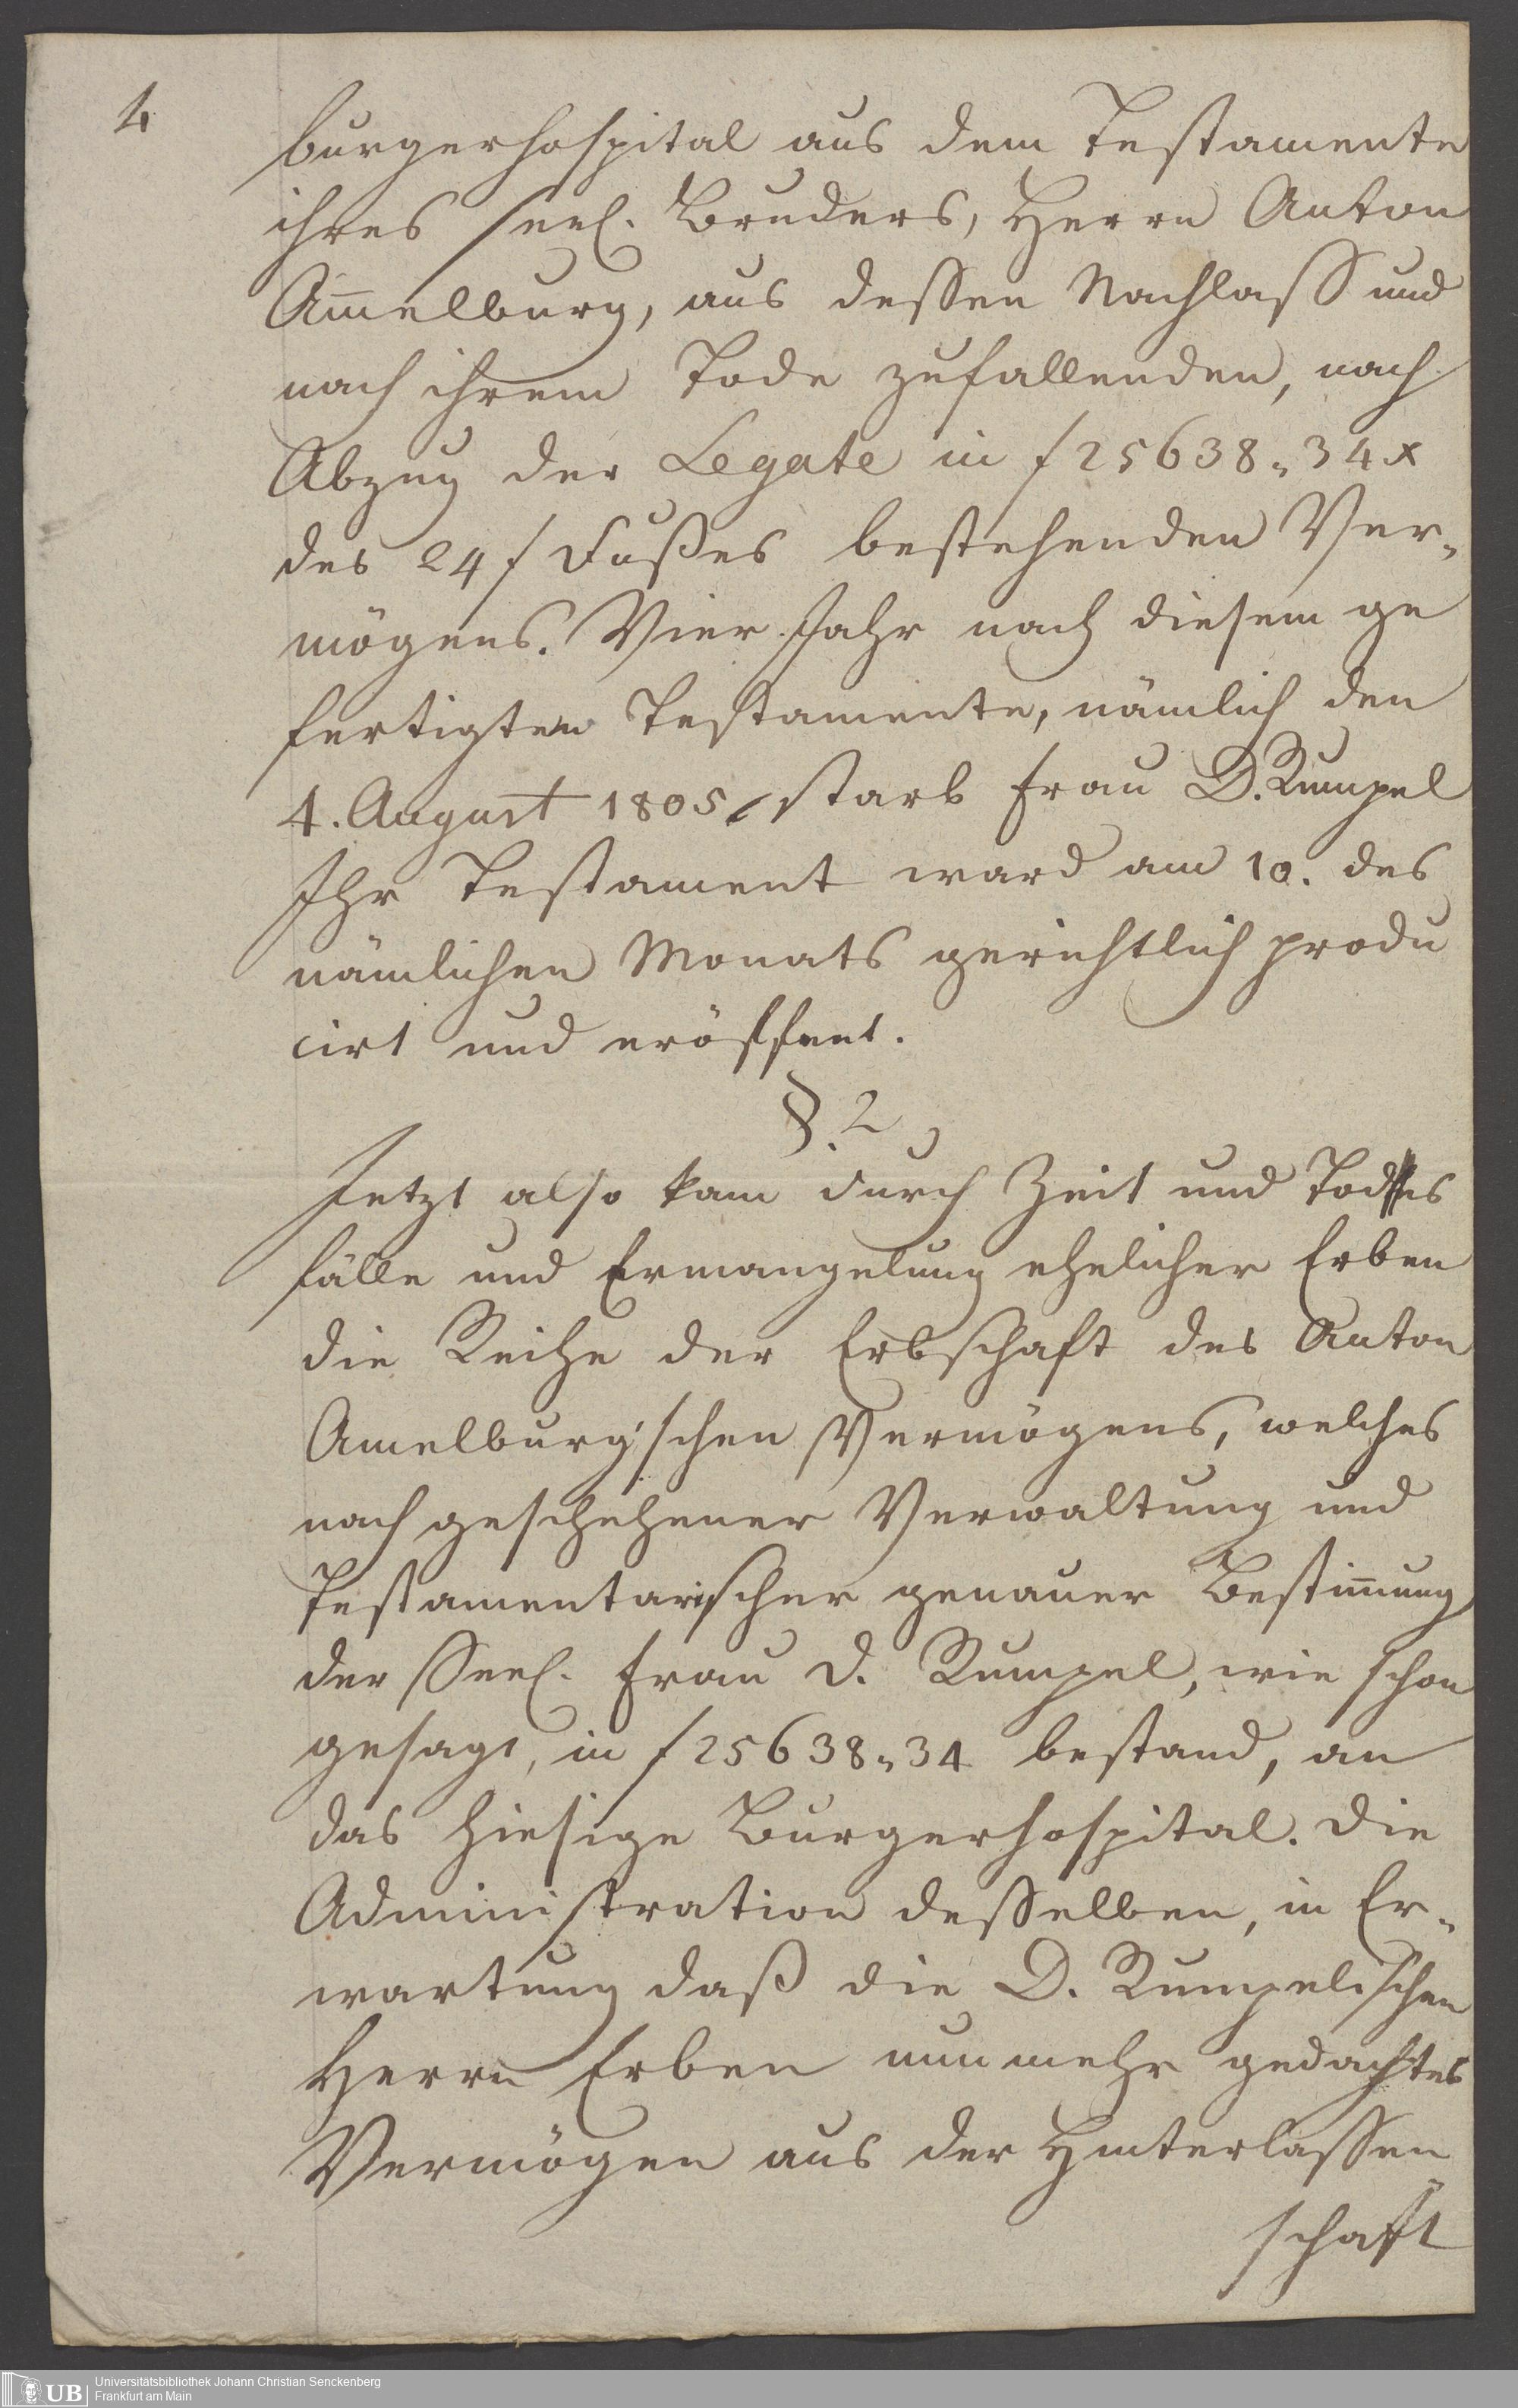 4
burgerhospital aus dem Testamente
ihres seel. Bruders, Herrn Anton
Am̄elburg, aus dessen Nachlass und
nach ihrem Tode zufallenden, nach
Abzug der Legate in f 25638 „ 34 x
des 24 f Fußes bestehenden Ver„
mögens. Vier Jahr nach diesem ge
fertigten Testamente, nämlich den
4. August 1805, starb Frau D. Rumpel
Ihr Testament ward am 10. des
nämlichen Monats gerichtlich produ
cirt und eröffnet.
§. 2
Jetzt also kam durch Zeit und Todes
fälle und Ermangelung ehelicher Erben
die Reihe der Erbschaft des Anton
Amelburg'schen Vermögens, welches
nach geschehener Verwaltung und
Testamentarischer genauer Bestim̄ung
der Seel. Frau D. Rumpel, wie schon
gesagt, in f 25638 „ 34 bestand, an
das hiesige Burgerhospital. Die
Administration desselben, in Er„
wartung daß die D. Rumpelischen
Herrn Erben nunmehr gedachtes
Vermögen aus der Hinterlassen
schaft
Universitätsbibliothek Johann Christian Senckenberg
Frankfurt am Main
UB